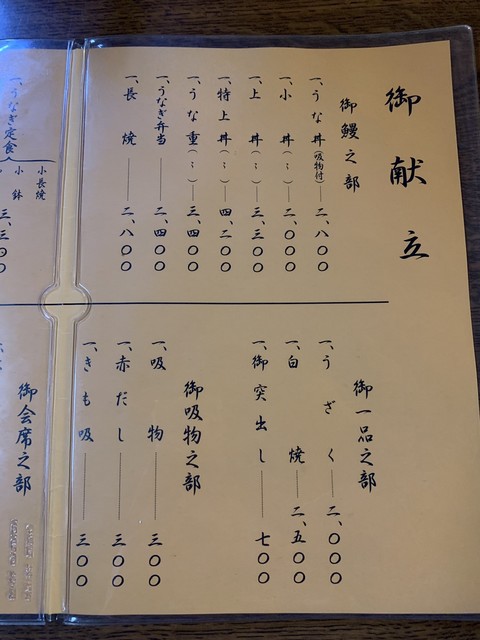 御献立
御鰻之部
一、うな丼(吸物付)二、八〇〇
一、小丼(〃)二、〇〇〇
一、上丼(〃)三、三〇〇
一、特上丼(〃)四、二〇〇
一、うな重(〃)三、四〇〇
一、うなぎ弁当 二、四〇〇
一、長焼 二、八〇〇
御一品之部
一、うざく 二、〇〇〇
一、白焼 二、五〇〇
一、御突出し 七〇〇
御吸物之部
一、吸物 三〇〇
一、赤だし 三〇〇
一、きも吸 三〇〇
一、うなぎ定食
小長焼
小鉢
三、三〇〇
御会席之部